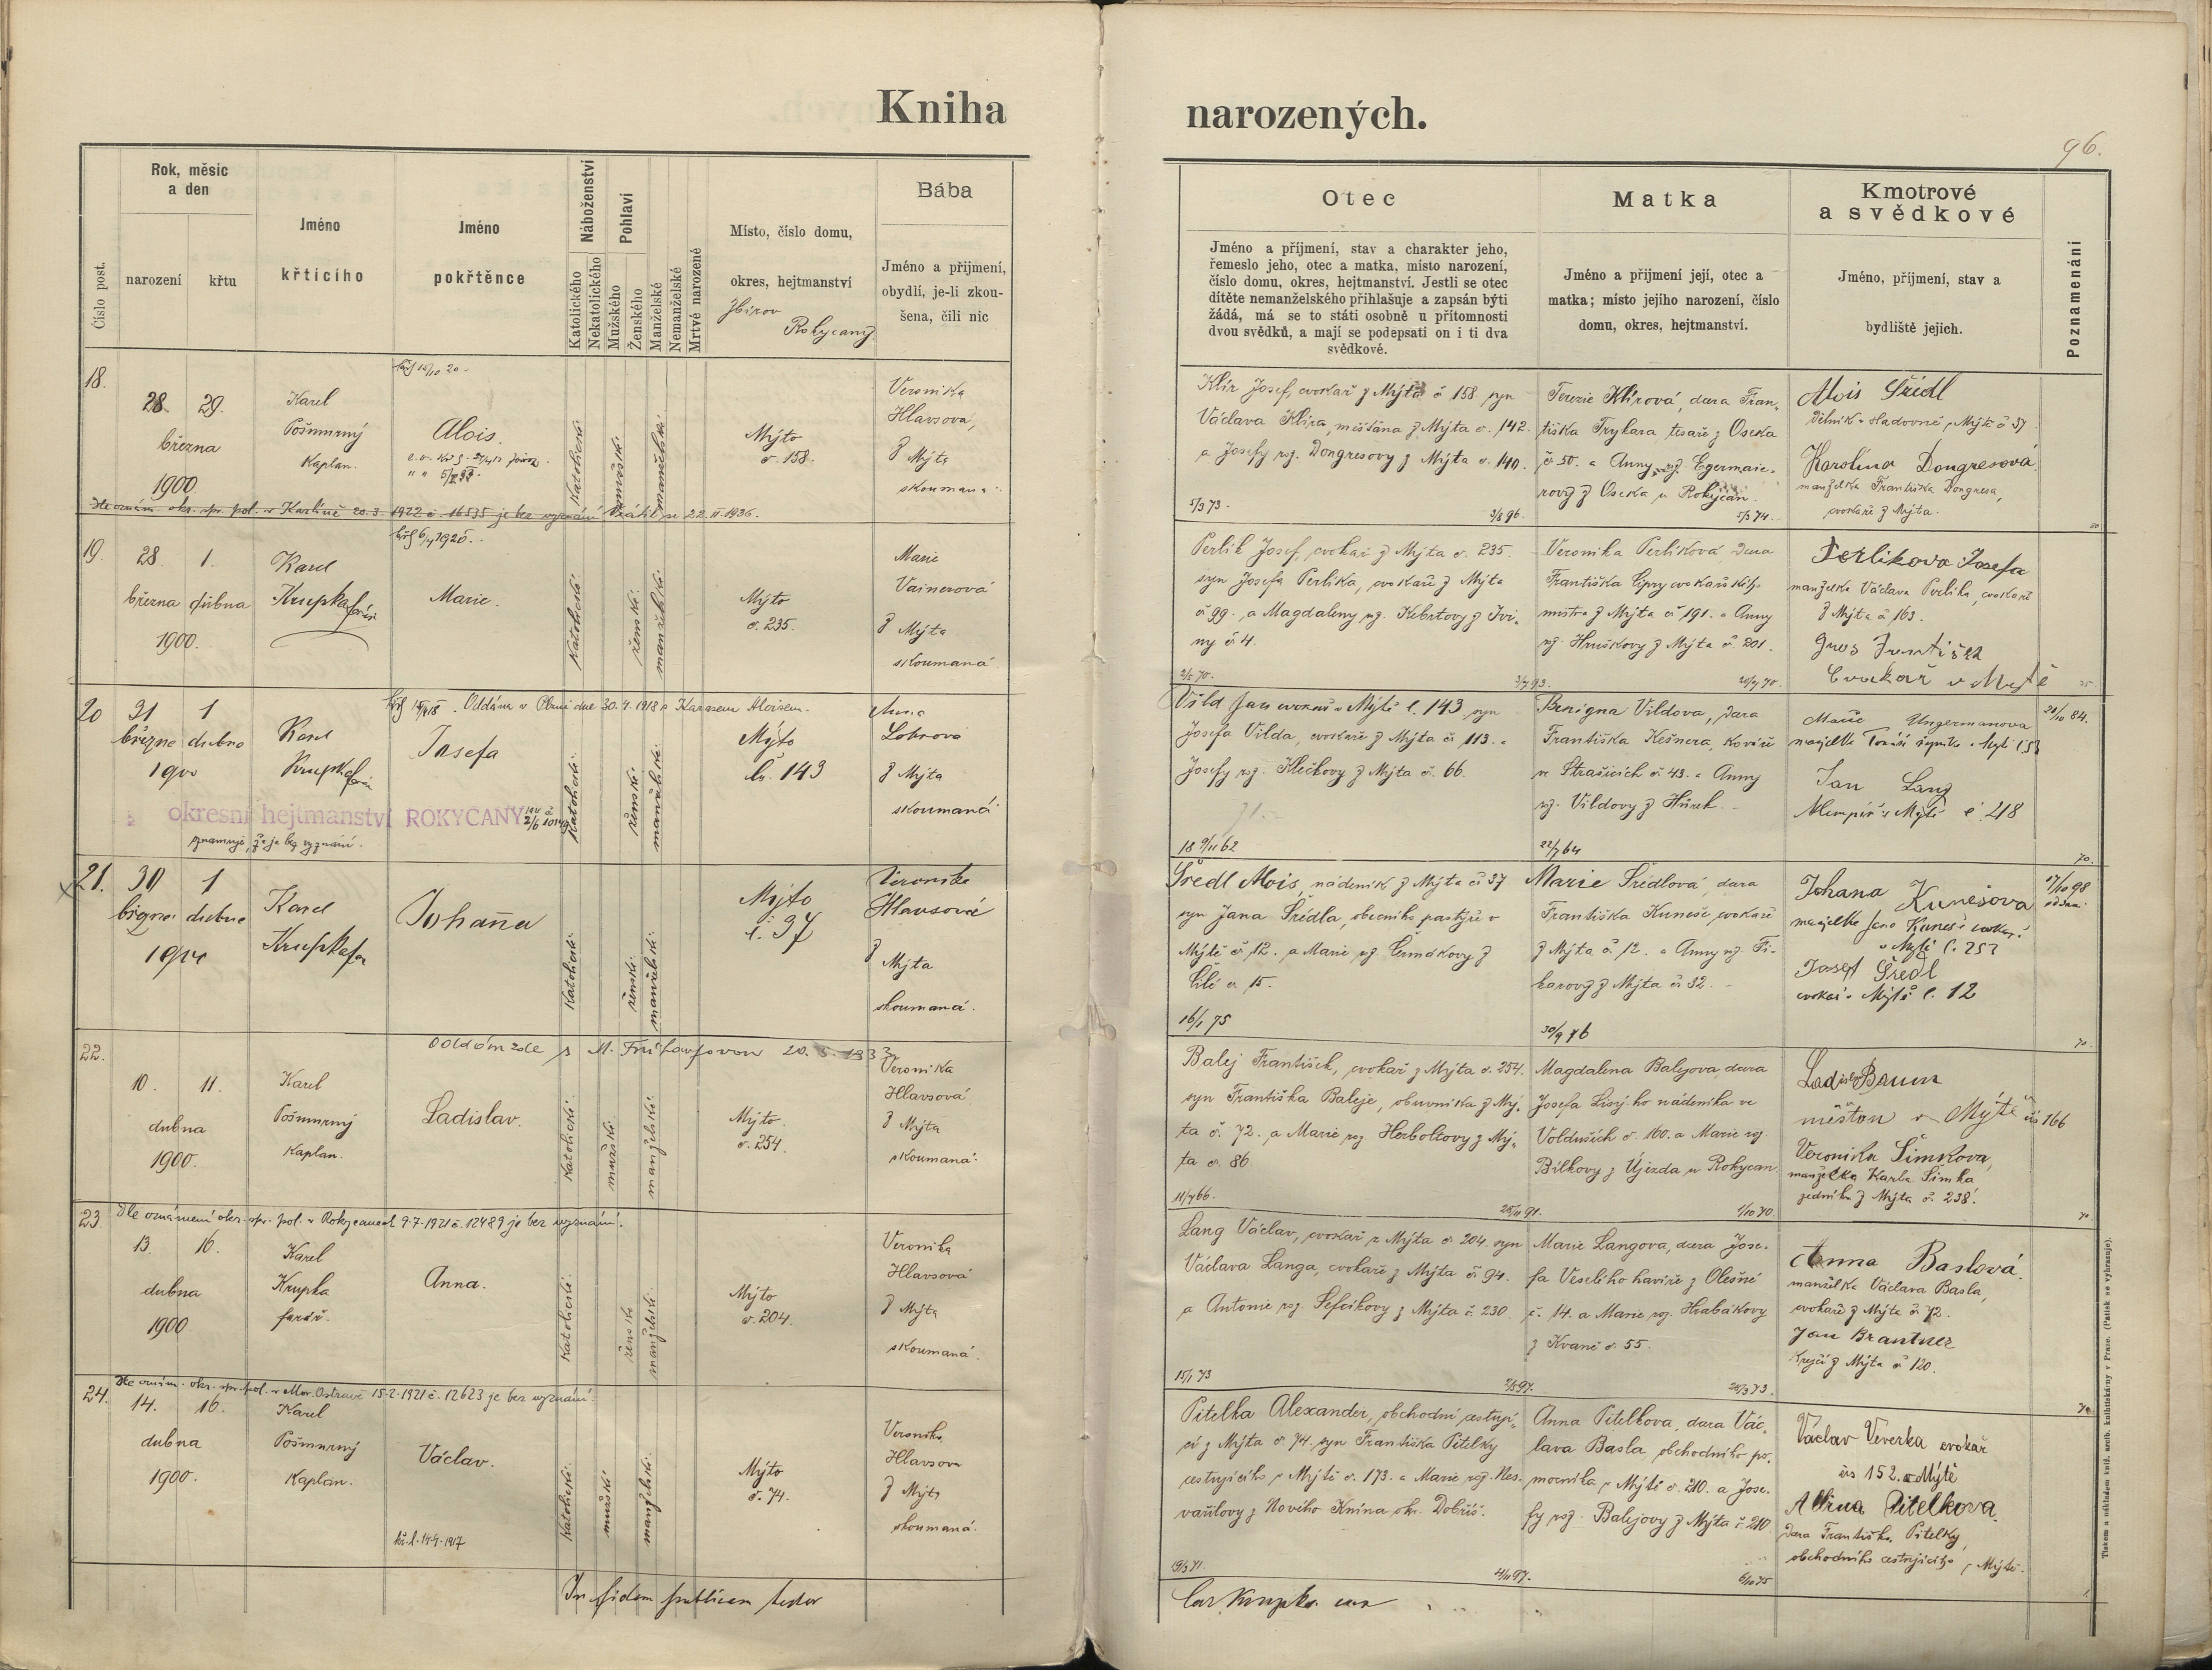 Kniha
narozených.
96.
Číslo post.
Rok, měsíc
a den
narození
křtu
Jméno
křtícího
Jméno
pokřtěnce
Náboženství
Katolického
Nekatolického
Pohlaví
Mužského
Ženského
Manželské
Nemanželské
Mrtvé narozené
Místo, číslo domu,
okres, hejtmanství
Zbirov
Rokycany
Bába
Jméno a přijmení,
obydlí, je-li zkou-
šena, čili nic
Otec
Jméno a příjmení, stav a charakter jeho,
řemeslo jeho, otec a matka, místo narození,
číslo domu, okres, hejtmanství. Jestli se otec
dítěte nemanželského přihlašuje a zapsán býti
žádá, má se to státi osobně u přítomnosti
dvou svědků, a mají se podepsati on i ti dva
svědkové.
Matka
Jméno a přijmení její, otec a
matka; místo jejího narození, číslo
domu, okres, hejtmanství.
Kmotrové
a svědkové
Jméno, příjmení, stav a
bydliště jejich.
Poznamenání
18.
28. 29.
března
1900.
Karel
Pošmurný
Kaplan.
Alois.
Katolické
mužské
manželské
Mýto
č. 158.
Veronika
Hlavsová,
z Mýta
skoumaná
Dle oznám. okr. spr. pol. v Karlíně 20.3.1922 č. 16535 je bez vyznání
22.II.1936.
Klír Josef, cvokař z Mýta č 158 syn
Václava Klíra, měšťana z Mýta č. 142.
a Josefy roz. Dongresovy z Mýta č. 140.
5/3 73.
3/8 96.
Terezie Klírová, dcera Fran-
tiška Trykara tesaře z Oseka
č 50. a Anny roz.
z Oseka u Rokycan.
5/3 74.
Alois Šrédl
Karolina Dongresová
manželka Františka Dongresa,
cvokaře z Mýta.
19.
28. 1.
března dubna
1900.
Karel
Krupka farář
Marie.
Katolické
ženské
manželské
Mýto
č. 235.
Marie
Vainerová
z Mýta
skoumaná
Perlík Josef, cvokař z Mýta č. 235.
syn Josefa Perlíka, cvokaře z Mýta
č 99. a Magdaleny roz. Kebrtovy z Svi-
ny č 4.
Veronika Perlíková dcera
mistra z Mýta č 191. a Anny
roz. Hruškovy z Mýta č. 201.
Perlikova Josefa
manželka Václava Perlíka, cvokaře
z Mýta č 163.
František
Cvokař v Mytě
20
31 1
března dubna
1900
Karel
Krupka farář
Josefa
Oddána v Plzni dne 30.4.1918 s Karasem Aloisem.
Katolické
ženské
manželské
Mýto
č. 143
Anna
Lohrová
z Mýta
skoumaná
okresní hejtmanství ROKYCANY
oznamuje, že je bez vyznání.
Vild Jan cvokař v Mýtě č. 143 syn
Josefa Vilda, cvokaře z Mýta č. 113. a
Josefy roz. Klečkovy z Mýta č. 66.
18 9/11 62
Benigna Vildova, dcera
Františka Kešnera, kováře
ve Strašicích č 43. a Anny
roz. Vildovy z Hůrek.
22/7 64
Marie Ungermanova
Jan Lang
Klempíř v Mýtě č. 218
21.
1
dubna
Karel
Krupka far
Johana
Katolické
ženské
manželské
Mýto
č. 37
Veronika
Hlavsová
z Mýta
skoumaná.
Šredl Alois, nádeník z Mýta č 37
syn Jana Šrédla, obecního pastýře v
Mýtě č. 12. a Marie roz. Čermákovy z
č. 15.
16/1 75
Marie Šrédlová, dcera
Františka Kuneše, cvokaře
z Mýta č. 12. a Anny roz. Fi-
karovy z Mýta č. 32.
30/9 76
Johana Kunešova
manželka Jana Kuneše cvokaře
v Mýtě č. 252
Josef Šredl
cvokař v Mýtě č. 12
17/10 98
22.
10. 11.
dubna
1900.
Karel
Pošmurný
Kaplan.
Ladislav.
Katolické
mužské
manželské
Mýto.
č. 254.
Veronika
Hlavsová
z Mýta
skoumaná.
Balej František, cvokař z Mýta č. 254.
syn Františka Baleje, obuvníka z Mý-
ta č. 72. a Marie roz. Herboltovy z Mý-
ta č. 86
11/7 66.
25/11 91.
Magdalena Balejova, dcera
Josefa Lisého nádeníka ve
Volduších č. 160. a Marie roz.
Bílkovy z Újezda u Rokycan
1/10 70.
Ladislav Braun
měšťan v Mýtě čís 166
Veronika Šimkova,
manželka Karla Šimka
zedníka z Mýta č. 238.
23.
Dle oznámení okr. spr. pol. v Rokycanech 9.7.1921 č. 12489 je bez vyznání.
13. 16.
dubna
1900
Karel
Krupka
farář.
Anna.
Katolické
ženské
manželské
Mýto
č. 204.
Veronika
Hlavsová
z Mýta
skoumaná.
Lang Václav, cvokař z Mýta č. 204. syn
Václava Langa, cvokaře z Mýta č. 94.
a Antonie roz. Sefcikovy z Mýta č. 230.
15/1 73
Marie Langova, dcera Jose-
fa Veselého havíře z Olešné
č. 14. a Marie roz. Hrabákovy
z Kvaně č. 55.
Anna Baslová.
manželka Václava Basla,
cvokaře z Mýta č. 72.
Jan Brantner
Krejčí z Mýta č. 120.
24.
Dle oznám. okr. spr. pol. v Mor. Ostravě 15.2.1921 č. 12623 je bez vyznání.
14. 16.
dubna
1900.
Karel
Pošmurný
Kaplan.
Václav.
Katolické
mužské
manželské
Mýto
č. 74.
Veronika
Hlavsova
z Mýta
skoumaná.
Pitelka Alexander, obchodní cestují-
cí z Mýta č. 74. syn Františka Pitelky
cestujícího z Mýtě č. 173. a Marie roz. Nes-
vařilovy z Nového Knína okr. Dobříš.
19/3 71.
4/11 97.
Anna Pitelkova, dcera Vác-
lava Basla, obchodního po-
mocníka z Mýtě č. 210. a Jose-
fy roz. Balejovy z Mýta č. 210
6/10 75
Vaclav Veverka cvokař
čís 152. v Mýtě
Albina Pitelkova.
dcera Františka Pitelky,
obchodního cestujícího z Mýtě.
In fidem publicam testor
Car. Krupka
Tiskem a nákladem kníž. arcib. knihtiskárny v Praze. (Patisk se vyhrazuje).